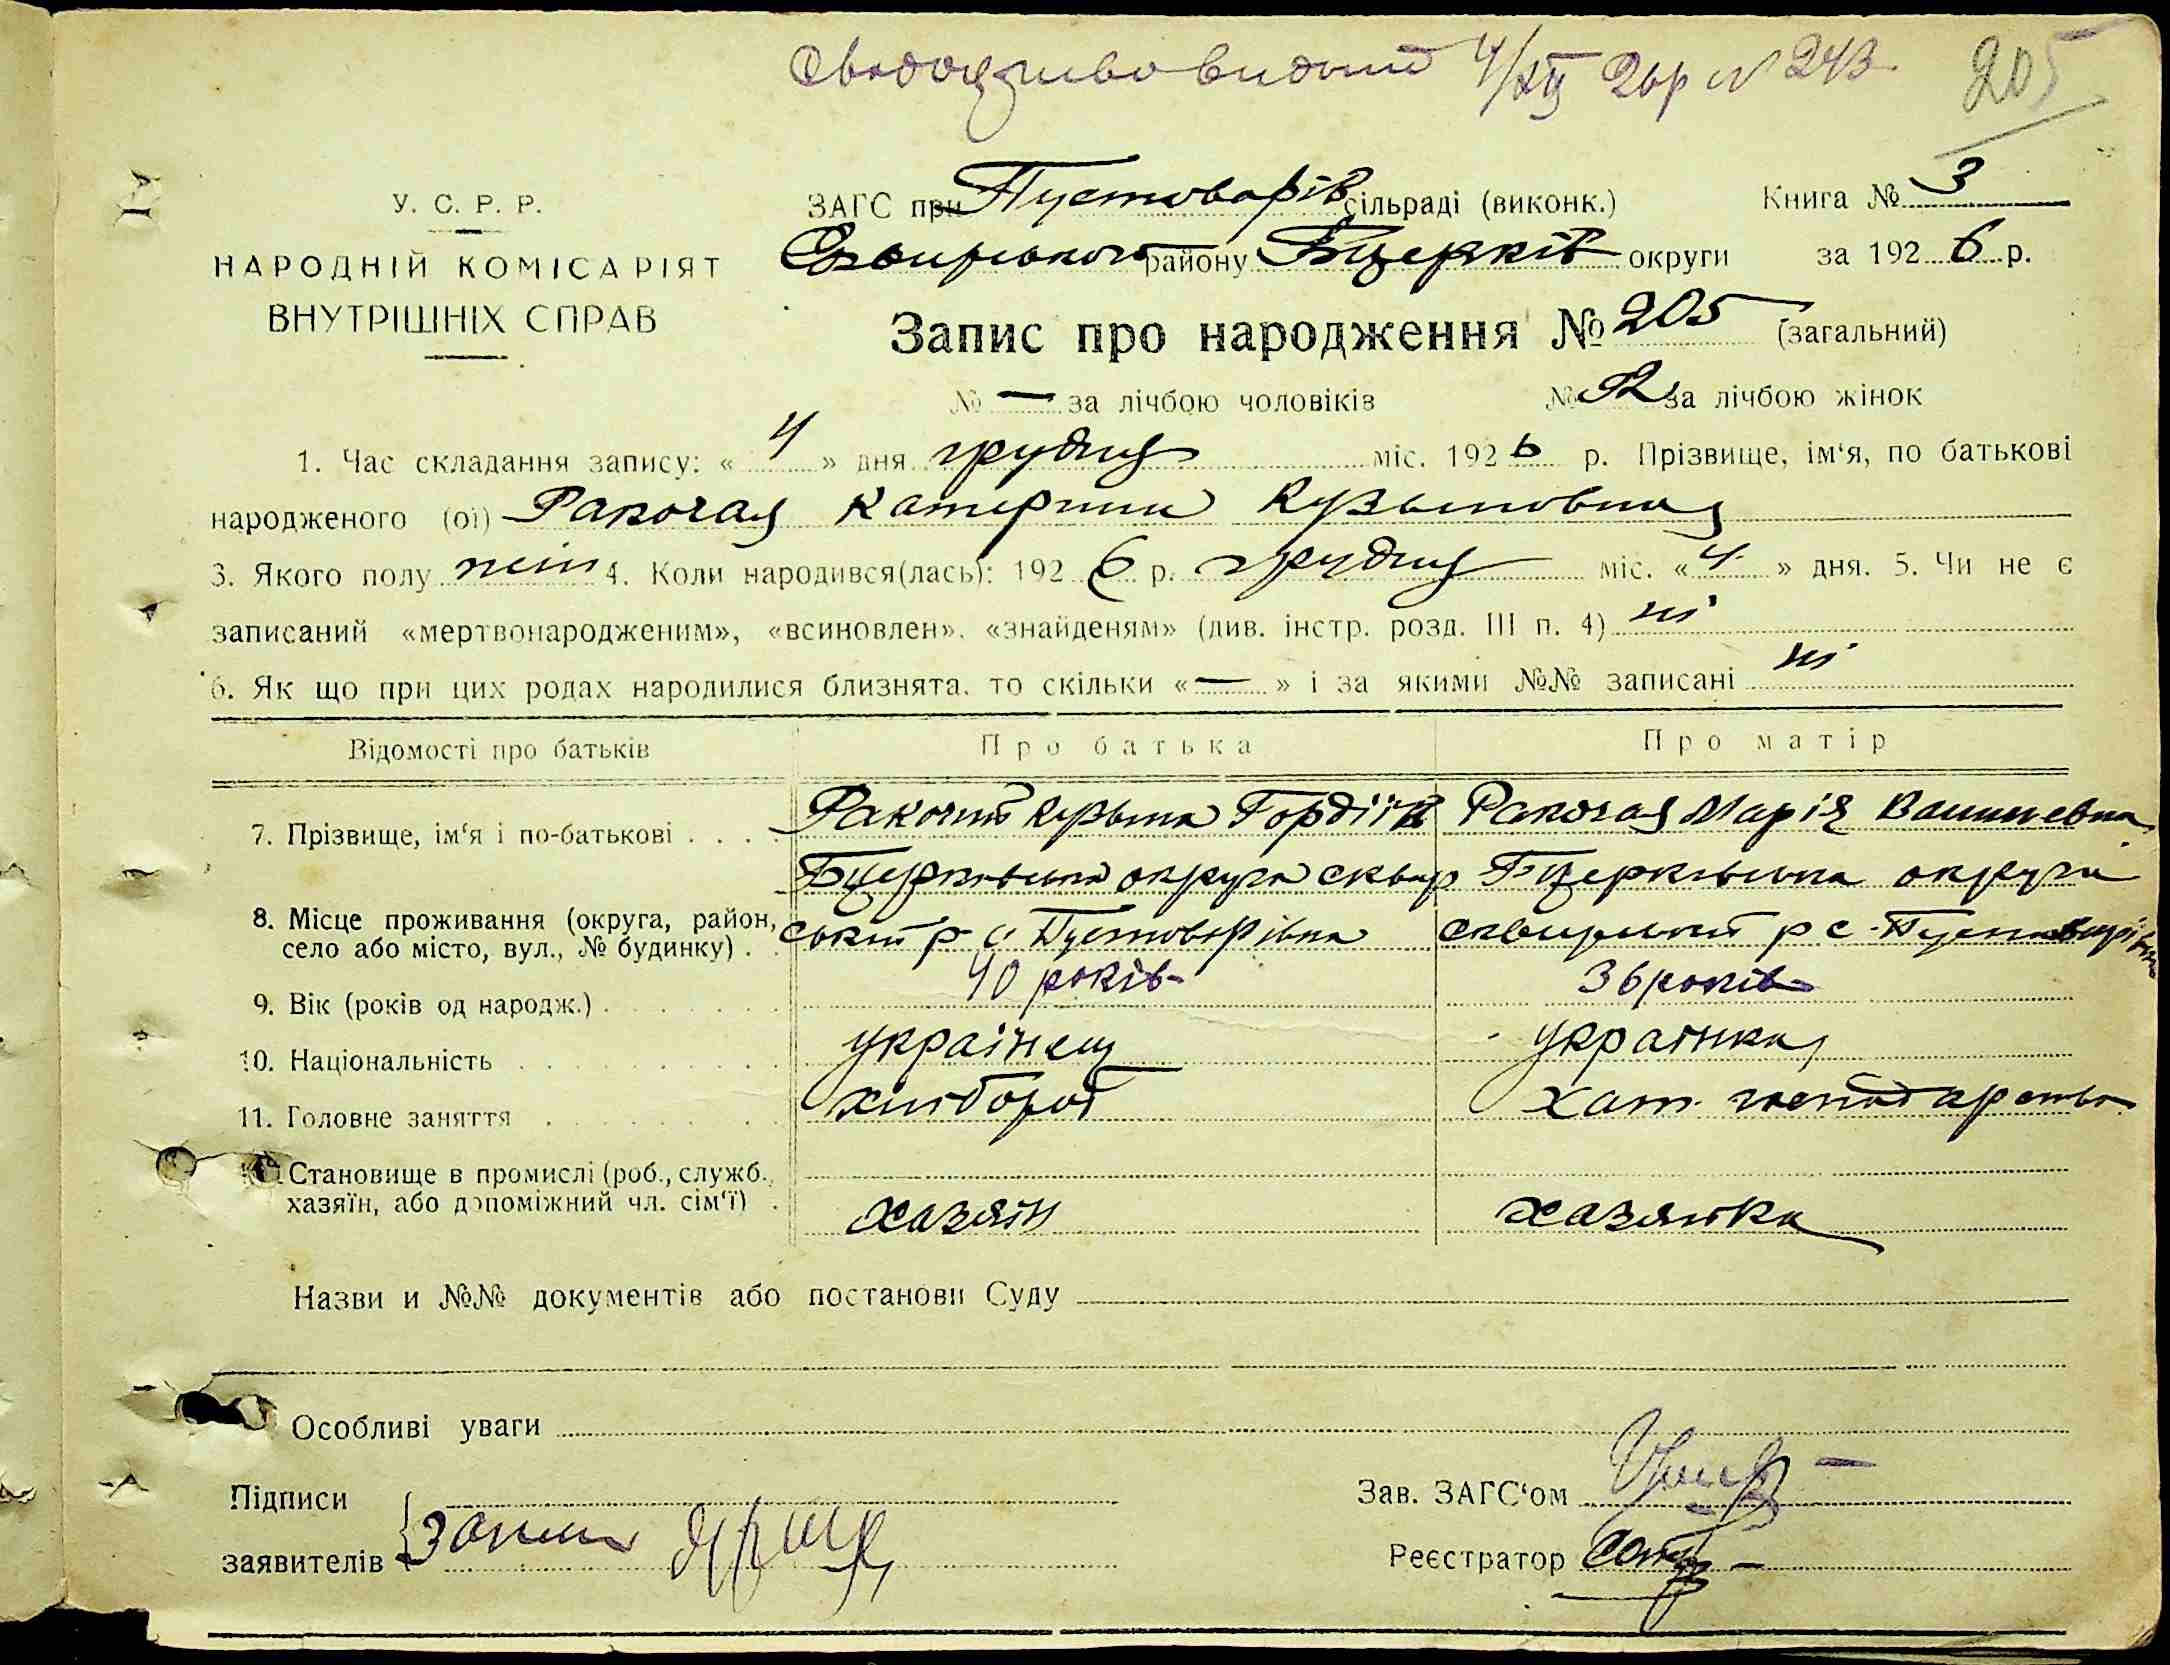 видания 4/XII 26р № 243 205
У. С. Р. Р.
НАРОДНІЙ КОМІСАРІЯТ
ВНУТРІШНІХ СПРАВ
ЗАГС при Пустоварів сільраді (виконк.) Книга № 3
Сквирського району Бцерків округи за 1926 р.
Запис про народження № 205 (загальний)
№ — за лічбою чоловіків № 92 за лічбою жінок
1. Час складання запису: « 4 » дня грудня міс. 1926 р. Прізвище, ім‘я, по батькові
народженого (ої) Ракочая Катерина Кузьмовна
3. Якого полу жін 4. Коли народився(лась): 1926 р. грудня міс. « 4 » дня. 5. Чи не є
записаний «мертвонародженим», «всиновлен», «знайденям» (див. інстр. розд. III п. 4) ні
6. Як що при цих родах народилися близнята, то скільки « — » і за якими №№ записані ні
Відомості про батьків Про батька Про матір
7. Прізвище, ім‘я і по-батькові . . . . Ракочий Кузьма Гордіїв Ракочая Марія
8. Місце проживання (округа, район, село або місто, вул., № будинку) . . Бцерківська округа сквирський р с Пустоварівка Бцерківська округа сквирський р с. Пустоварівка
9. Вік (років од народж.) . . . . . . . 40 років 36 років
10. Національність . . . . . . . . . . українець українка
11. Головне заняття . . . . . . . . . хлібороб хат. господарство
Становище в промислі (роб., служб., хазяїн, або допоміжний чл. сім‘ї) . хазяїн хазяйка
Назви и №№ документів або постанови Суду
Особливі уваги
Підписи
заявителів
Зав. ЗАГС‘ом
Реєстратор